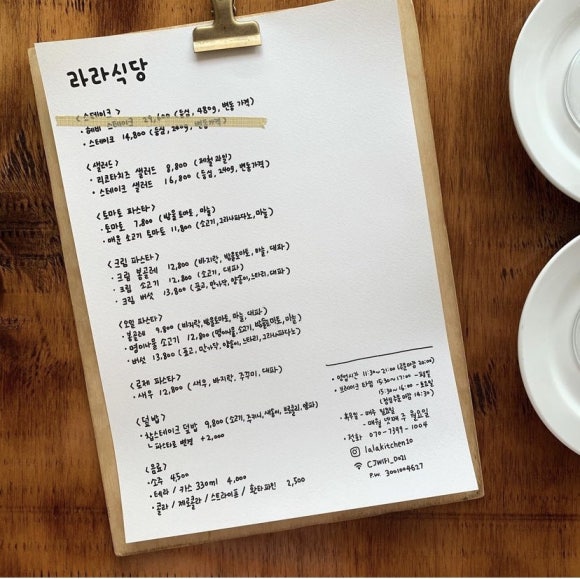 라라식당
<스테이크>
· 헤비 스테이크 29,600 (등심, 480g, 변동 가격)
· 스테이크 14,800 (등심, 240g, 변동가격)
<샐러드>
· 리코타치즈 샐러드 8,800 (제철 과일)
· 스테이크 샐러드 16,800 (등심, 240g, 변동가격)
<토마토 파스타>
· 토마토 7,800 (방울토마토, 마늘)
· 매운 소고기 토마토 11,800 (소고기, 그라나파다노, 마늘)
<크림 파스타>
· 크림 봉골레 12,800 (바지락, 방울토마토, 마늘, 대파)
· 크림 소고기 12,800 (소고기, 대파)
· 크림 버섯 13,800 (표고, 만가닥, 양송이, 느타리, 대파)
<오일 파스타>
· 봉골레 9,800 (바지락, 방울토마토, 마늘, 대파)
· 명이나물 소고기 12,800 (명이나물, 소고기, 방울토마토, 마늘)
· 버섯 13,800 (표고, 만가닥, 양송이, 느타리, 그라나파다노)
<로제 파스타>
· 새우 12,800 (새우, 바지락, 주꾸미, 대파)
<덮밥>
· 찹스테이크 덮밥 9,800 (소고기, 주키니, 새송이, 브로콜리, 양파)
ㄴ 파스타로 변경 +2,000
<음료>
· 소주 4,500
· 테라 / 카스 330ml 4,000
· 콜라 / 제로콜라 / 스프라이트 / 환타파인 2,500
· 영업시간 11:30~21:00 (주문마감 20:00)
· 브레이크 타임 15:30~17:00 - 평일
15:30~16:00 - 토요일
(점심주문마감 14:30)
· 휴무일 - 매주 일요일
- 매월 넷째 주 월요일
· 전화 070-7399-1004
lalakitchen20
CJWiFi_D021
P.W. 3001004627